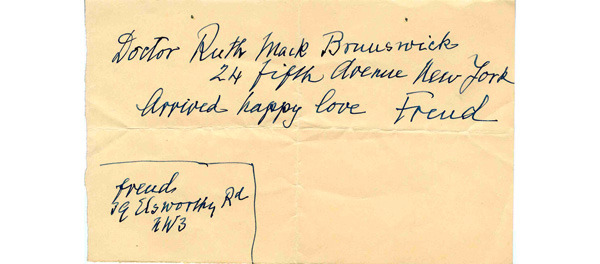 Doctor Ruth Mack Brunswick
24 fifth Avenue New York
Arrived happy love Freud
freuds
39 Elsworthy Rd
NW3